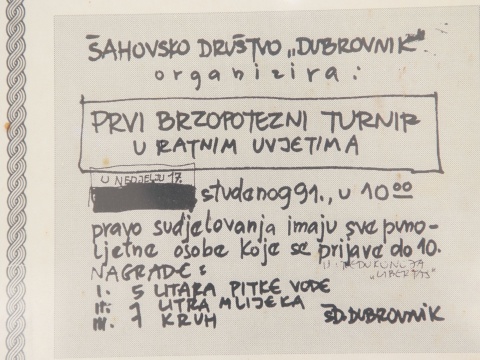 ŠAHOVSKO DRUŠTVO „DUBROVNIK"
organizira:
PRVI BRZOPOTEZNI TURNIR
U RATNIM UVJETIMA
U NEDJELJU 17.
studenog 91., u 10⁰⁰
pravo sudjelovanja imaju sve puno-
ljetne osobe koje se prijave do 10.
NAGRADE:
I. 5 LITARA PITKE VODE
II. 1 LITRA MLIJEKA
III. 1 KRUH
ŠD. DUBROVNIK